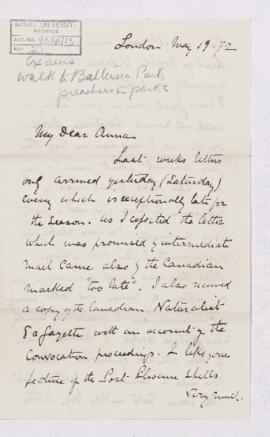 McGILL UNIVERSITY
ARCHIVES
ACC. NO.
REF.
Exams
walk to Battersea Park
preachers in parks
London May 19 - 72
My Dear Anna
Last weeks letters
only arrived yesterday (Saturday)
evng which is exceptionally late for
the season. As I expected the letter
which was promised by intermediate
mail came also by the Canadian
marked "too late". I also received
a copy of the Canadian Naturalist
& a gazette with an account of the
Convocation proceedings. I like your
picture of the Post-Pliocene shells
very much.